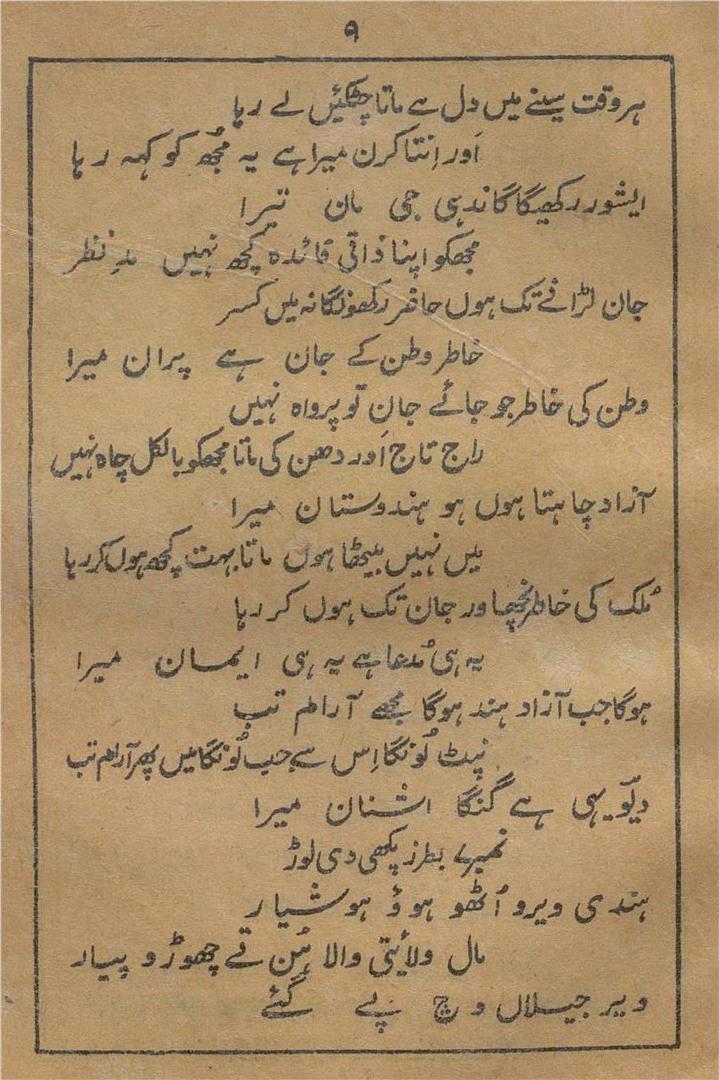 ۹
ہر وقت سینے میں دل سے ماتا چٹکئیں لے رہا
اَور اِنتا کرن میرا ہے یہ مجُھ کو کہہ رہا
ایشور رکھیگا گاندہی جی مان تیرا
مجھکو اپنا ذاتی فائدہ کچھ نہیں مدِ نظر
جان لڑانے تک ہوں حاضر رکھونگا نہ میں کسر
خاطر وطن کے جان ہے پران میرا
وطن کی خاطر جو جائے جان تو پرواہ نہیں
راج تاج اَور دھن کی ماتا مجھکو بالکل چاہ نہیں
آزاد چاہتا ہوں ہو ہندوستان میرا
میں نہیں بیٹھا ہوں ماتا بہت کچھ ہوں کر رہا
مُلک کی خاطر نچھاور جان تک ہوں کر رہا
یہ ہی مُدعا ہے یہ ہی ایمان میرا
ہوگا جب آزاد ہند ہوگا مجھے آرام تب
نپٹ لُونگا اِس سے جب لُونگا میں پھر آرام تب
دیّو یہی ہے گنگا اشنان میرا
نمبر ۷ بطرز پکھی دی لوڑ
ہندی ویرو اُٹھو ہوؤ ہوشیار
مال ولائتی والا ہُن تے چھوڑو پیار
ویر جیلاں وچ پے گئے